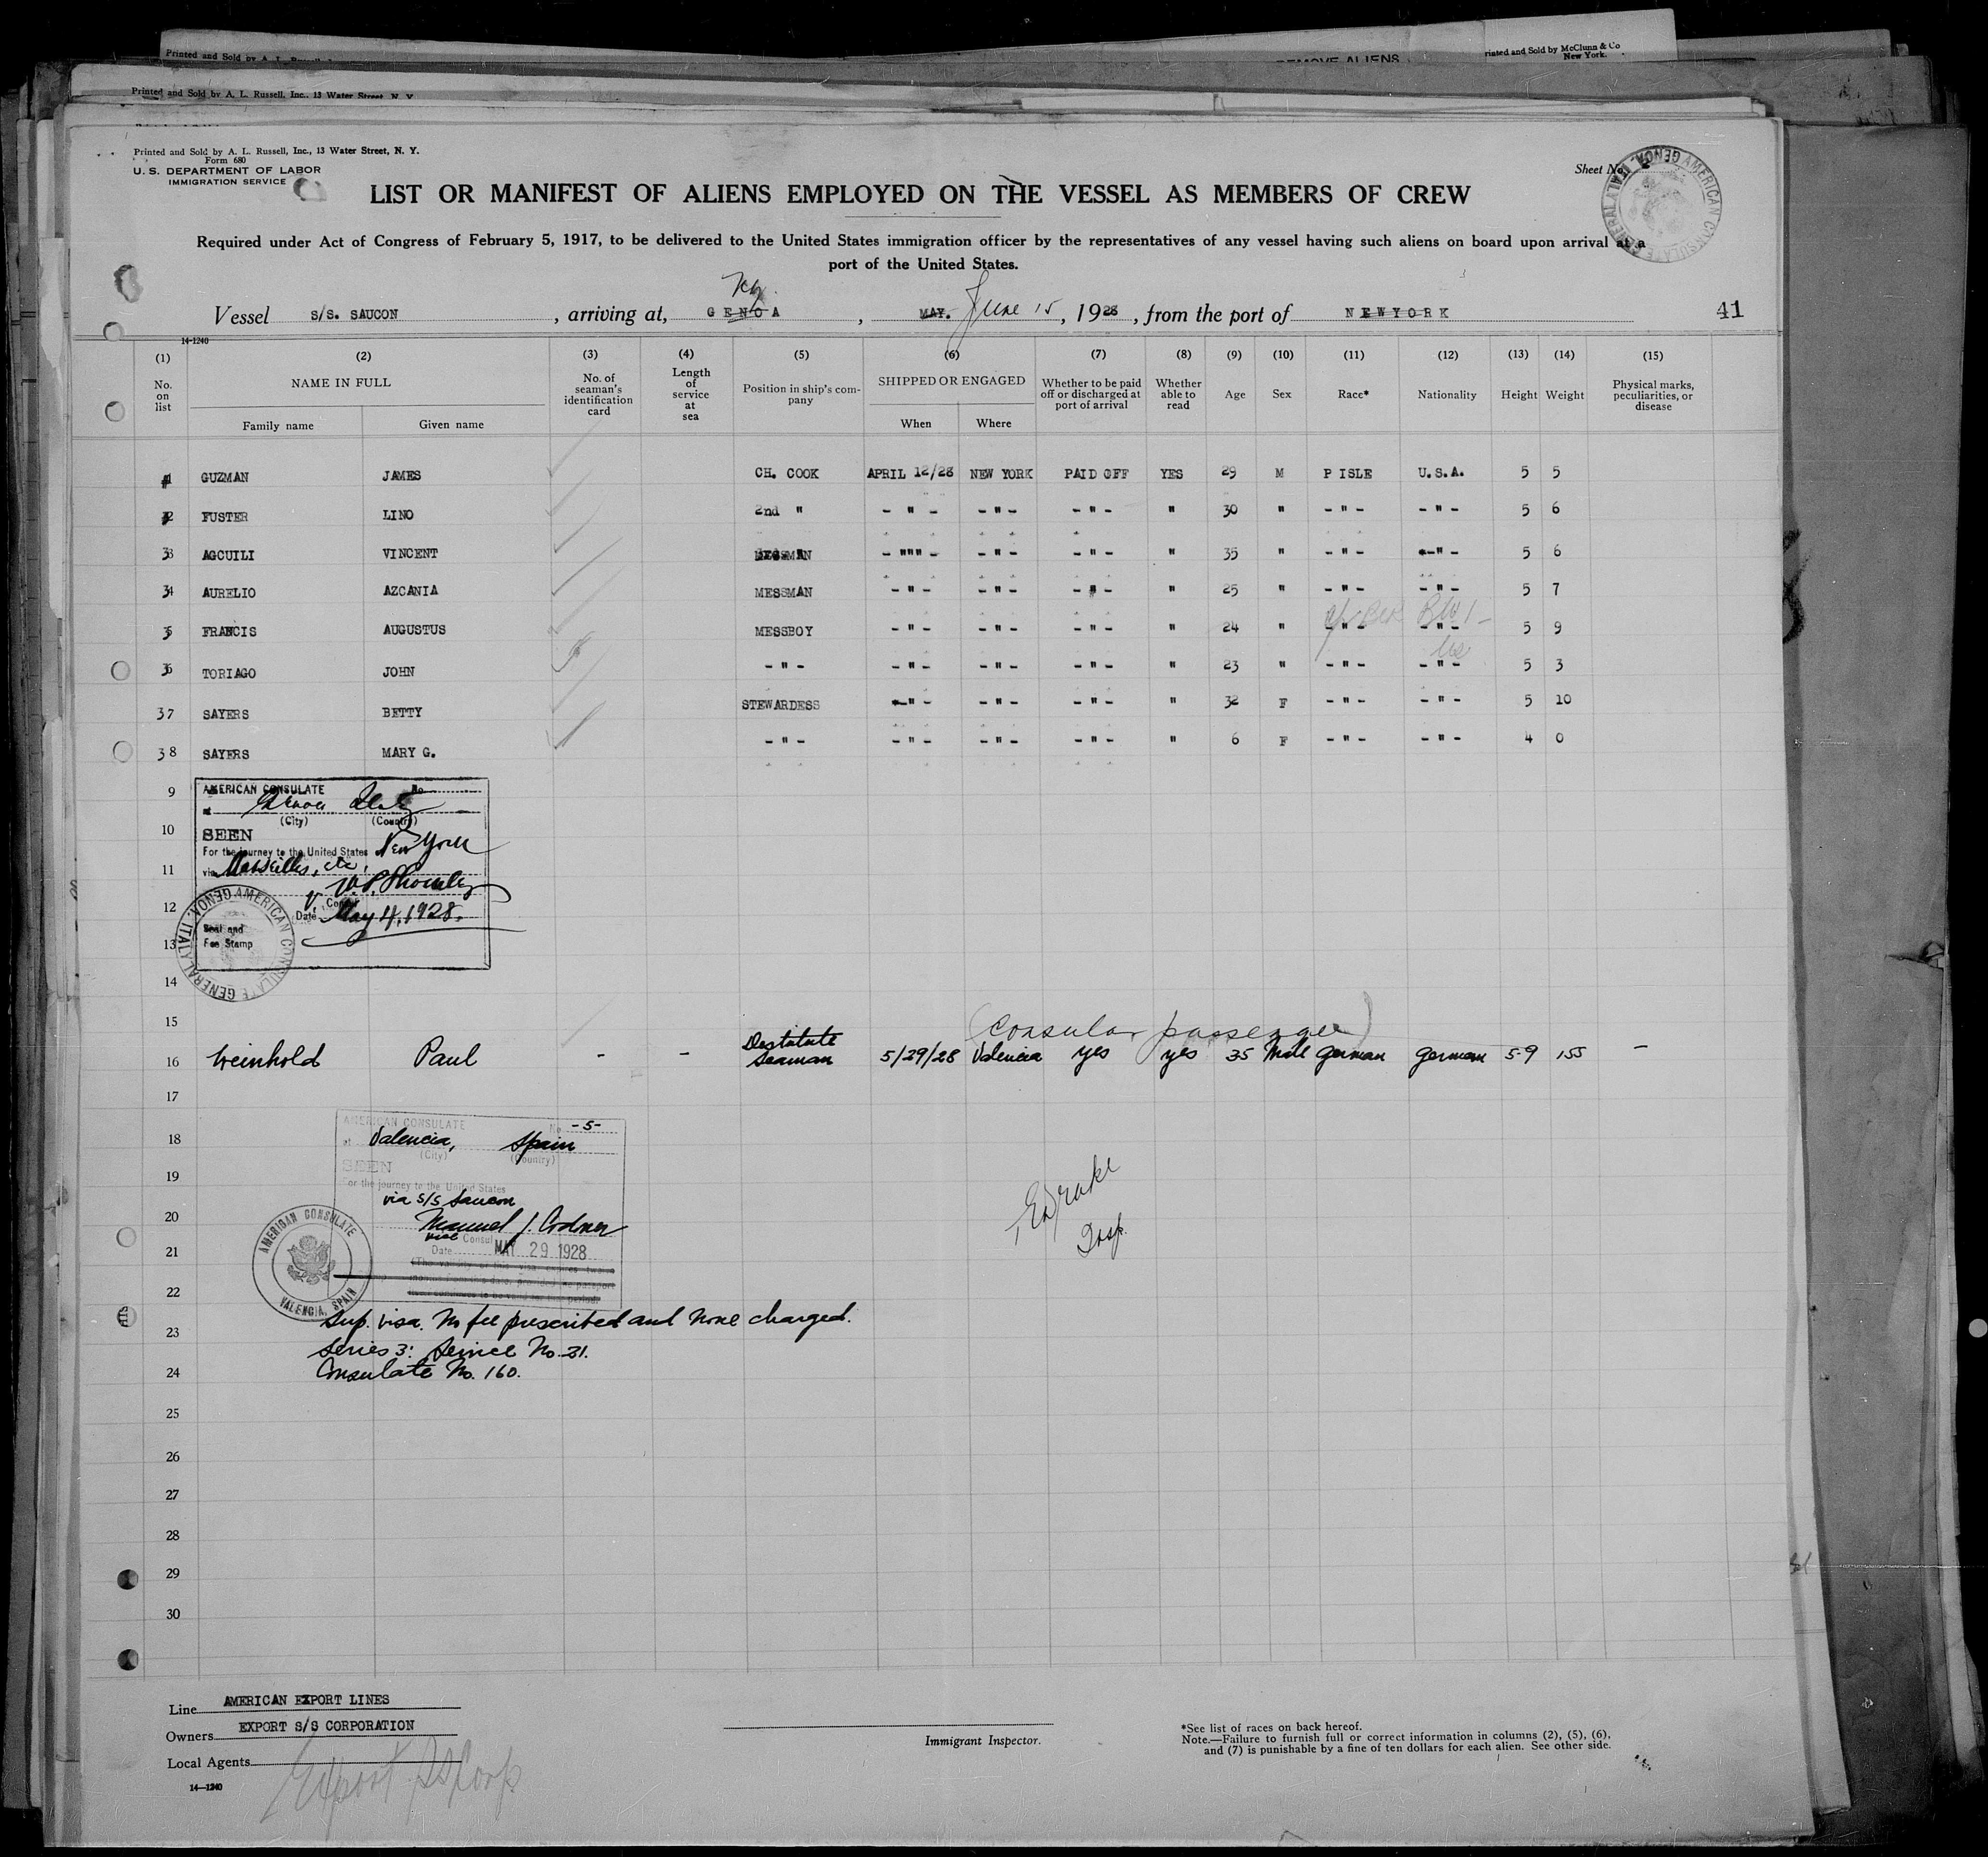 Printed and Sold by A. L. Russell, Inc., 13 Water Street, N. Y.
REMOVE ALIENS
Printed and Sold by McClunn & Co
New York.
Printed and Sold by A. L. Russell, Inc., 13 Water Street, N. Y.
Printed and Sold by A. L. Russell, Inc., 13 Water Street, N. Y.
Form 680
U. S. DEPARTMENT OF LABOR
IMMIGRATION SERVICE
Sheet No.
AMERICAN CONSULATE GENERAL GENOA, ITALY
LIST OR MANIFEST OF ALIENS EMPLOYED ON THE VESSEL AS MEMBERS OF CREW
Required under Act of Congress of February 5, 1917, to be delivered to the United States immigration officer by the representatives of any vessel having such aliens on board upon arrival at a
port of the United States.
Vessel S/S. SAUCON, arriving at, GENOA NY, MAY. June 15, 1928, from the port of NEWYORK 41
14-1240
(1) (2) (3) (4) (5) (6) (7) (8) (9) (10) (11) (12) (13) (14) (15)
No. on list NAME IN FULL Family name Given name No. of seaman's identification card Length of service at sea Position in ship's company SHIPPED OR ENGAGED When Where Whether to be paid off or discharged at port of arrival Whether able to read Age Sex Race* Nationality Height Weight Physical marks, peculiarities, or disease
1 GUZMAN JAMES CH. COOK APRIL 12/28 NEW YORK PAID OFF YES 29 M P ISLE U.S.A. 5 5
2 FUSTER LINO 2nd " - " - - " - - " - " 30 " - " - - " - 5 6
33 AGCUILI VINCENT MESSMAN - """ - - " - - " - " 35 " - " - - " - 5 6
34 AURELIO AZCANIA MESSMAN - " - - " - - " - " 25 " - " - - " - 5 7
35 FRANCIS AUGUSTUS MESSBOY - " - - " - - " - " 24 " - " - - " - 5 9
36 TORIAGO JOHN - " - - " - - " - - " - " 23 " - " - - " - 5 3
37 SAYERS BETTY STEWARDESS - " - - " - - " - " 32 F - " - - " - 5 10
38 SAYERS MARY G. - " - - " - - " - - " - " 6 F - " - - " - 4 0
9
AMERICAN CONSULATE No
at Genoa Italy
(City) (Country)
10
SEEN
For the journey to the United States New York
11
via Marseilles, etc.
12
V. Consul
Date May 4, 1928.
13
Seal and
Fee Stamp
AMERICAN CONSULATE GENERAL GENOA, ITALY
14
15
(Consular passenger)
16 Weinhold Paul - - Destitute Seaman 5/29/28 Valencia yes yes 35 Male German German 5-9 155 -
17
AMERICAN CONSULATE No. -5-
18
at Valencia, Spain
(City) (Country)
SEEN
19
For the journey to the United States
via S/S Saucon
20
Manuel J. Codoner
Vice Consul
21
Date MAY 29 1928
22
AMERICAN CONSULATE VALENCIA, SPAIN
Sup. visa. No fee prescribed and none charged.
23
Series 3: Service No. 31.
24
Consulate No. 160.
Drake
Insp.
25
26
27
28
29
30
Line AMERICAN EXPORT LINES
Owners EXPORT S/S CORPORATION
Local Agents Export SS Corp
14-1240
Immigrant Inspector.
*See list of races on back hereof.
Note.—Failure to furnish full or correct information in columns (2), (5), (6),
and (7) is punishable by a fine of ten dollars for each alien. See other side.